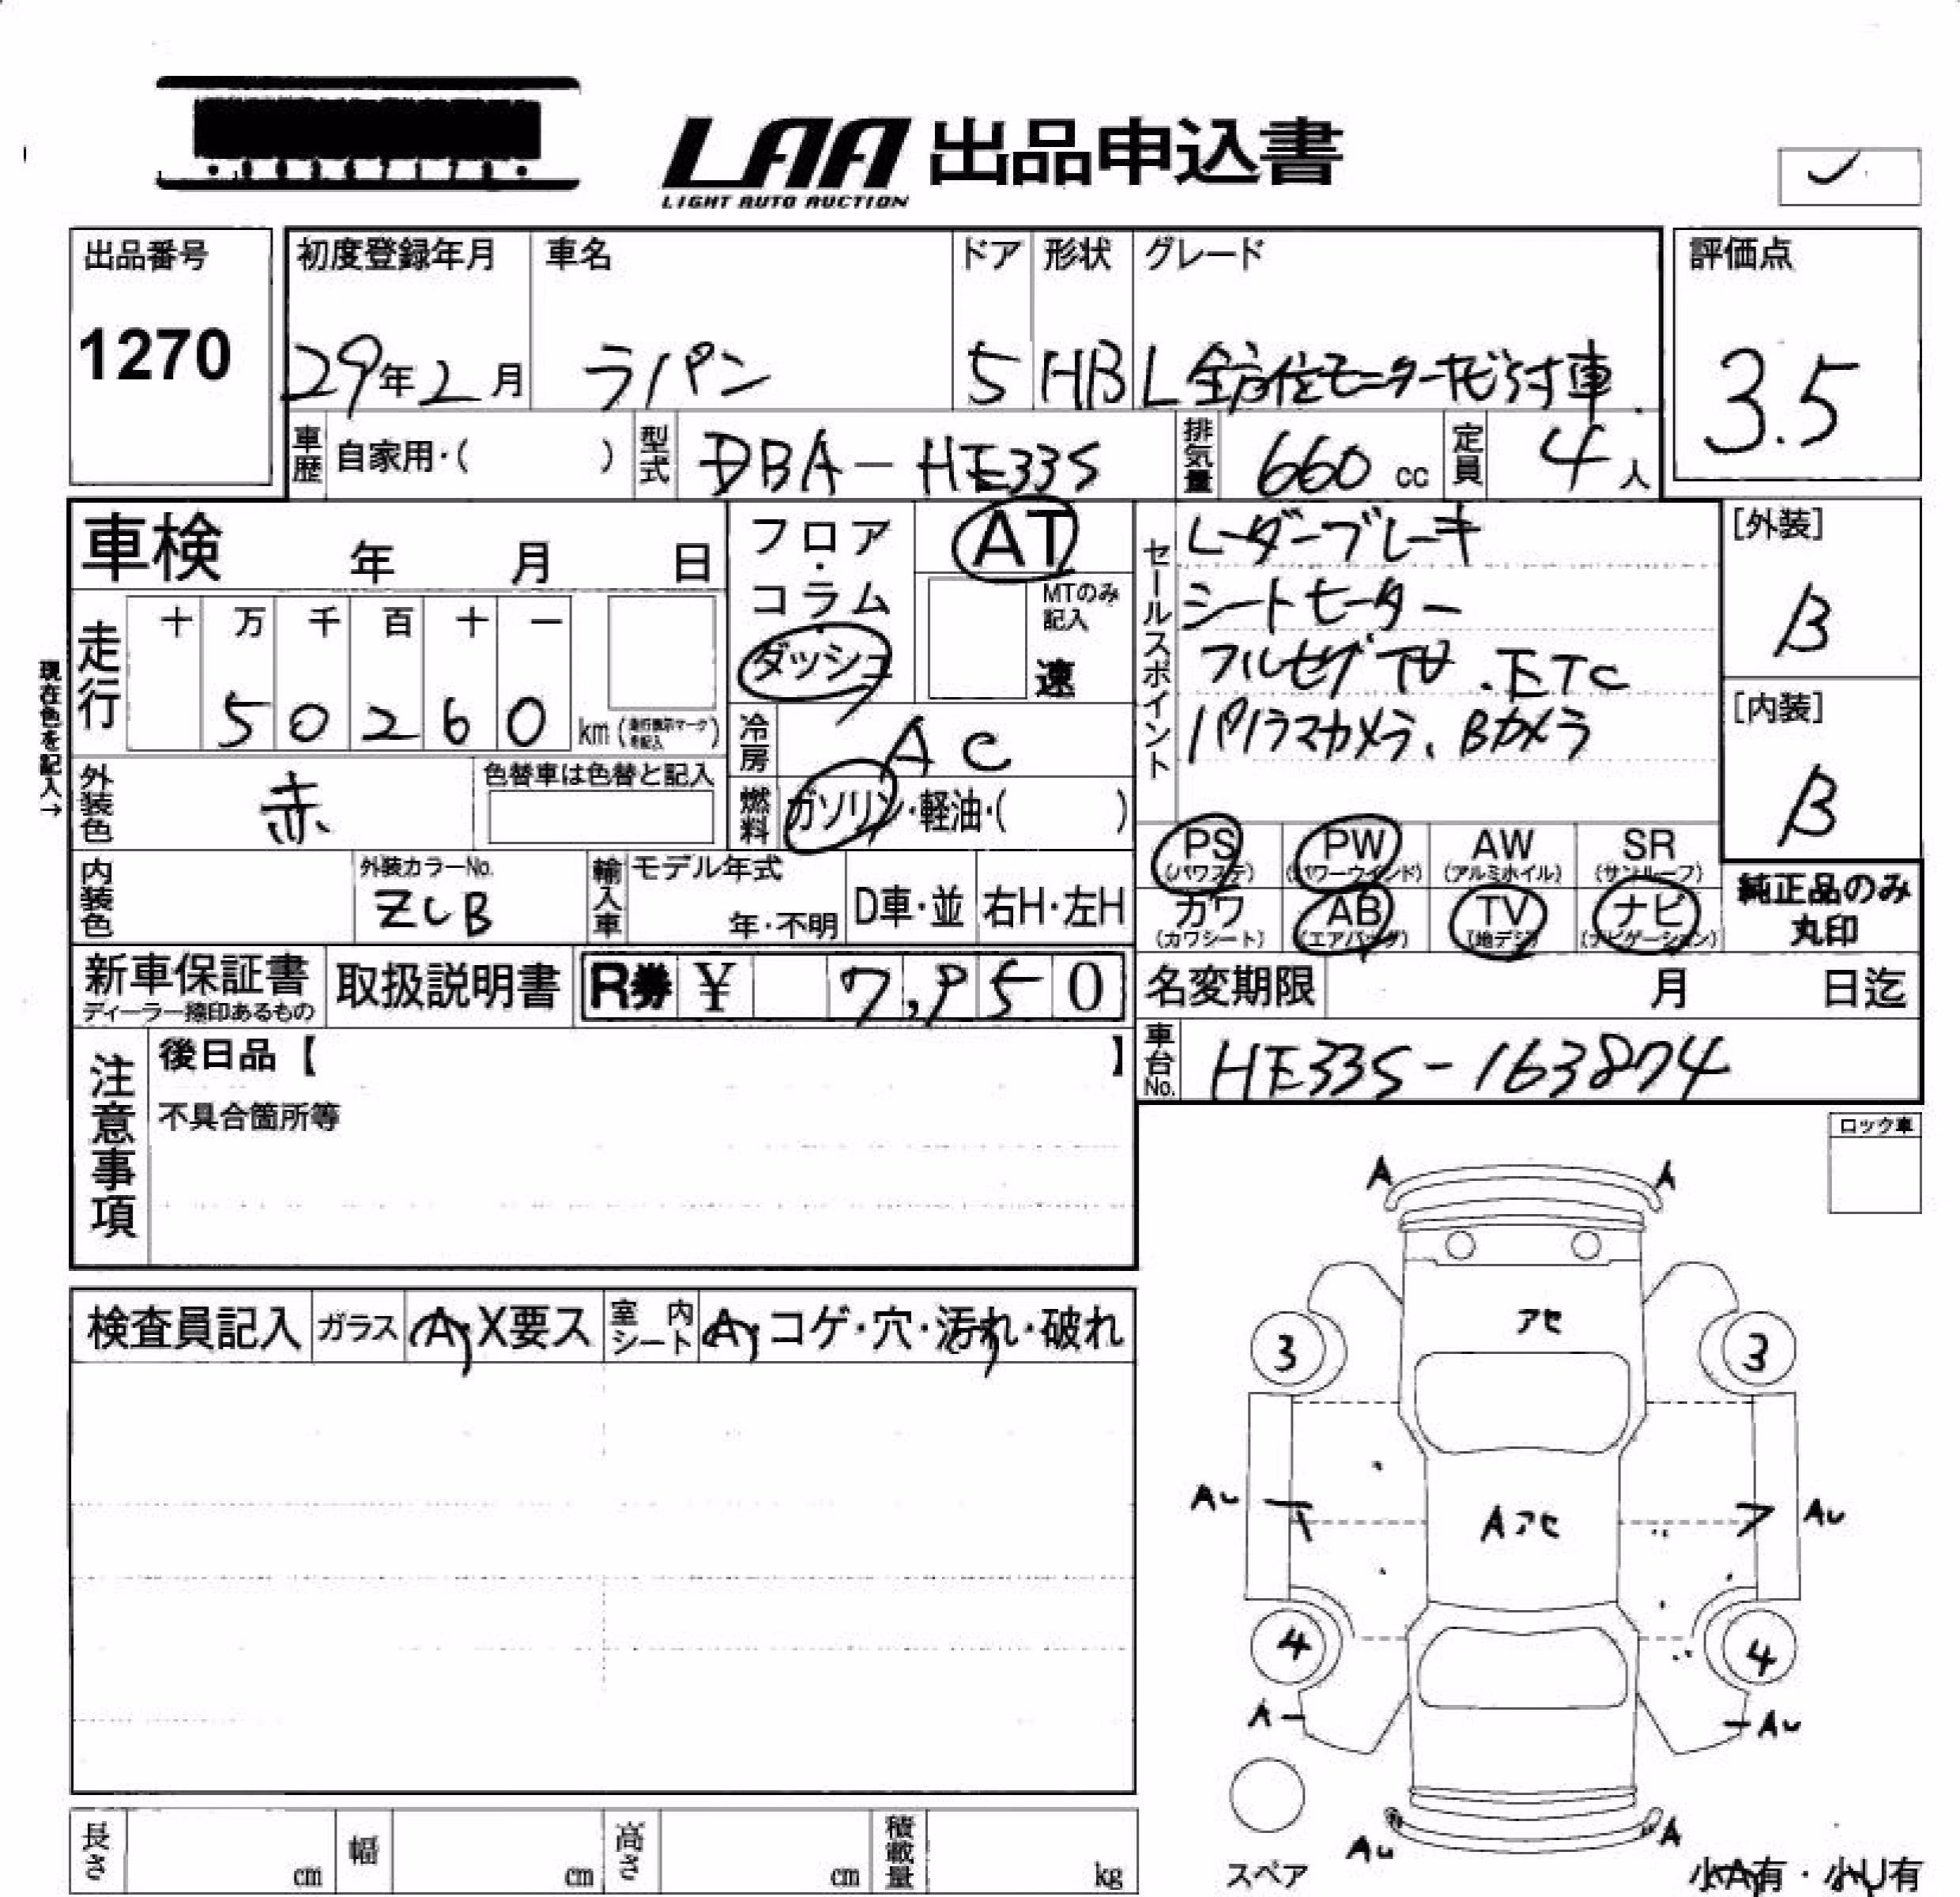 LAA 出品申込書
LIGHT AUTO AUCTION
出品番号
1270
初度登録年月
29年2月
車名
ラパン
ドア
5
形状
HB
グレード
L 全方位モニターナビ付車
評価点
3.5
車歴 自家用・( )
型式 DBA-HE33S
排気量 660 cc
定員 4人
車検 年 月 日
フロア・コラム・ダッシュ
AT
MTのみ記入
速
セールスポイント
レーダーブレーキ
シートヒーター
フルセグTV.ETC
パノラマカメラ、Bカメラ
[外装]
B
[内装]
B
現在色を記入→
走行 十 万 千 百 十 一
50260 km
冷房 AC
外装色 赤
色替車は色替と記入
燃料 ガソリン・軽油・( )
内装色
外装カラーNo.
ZCB
輸入車 モデル年式
年・不明
D車・並
右H・左H
PS (パワステ)
PW (パワーウインド)
AW (アルミホイル)
SR (サンルーフ)
カワ (カワシート)
AB (エアバッグ)
TV (地デジ)
ナビ (ナビゲーション)
純正品のみ
丸印
新車保証書
ディーラー捺印あるもの
取扱説明書
R券 ¥ 7,950
名変期限 月 日迄
車台No. HE33S-163874
注意事項
後日品【 】
不具合箇所等
ロック車
検査員記入
ガラス A・X要ス
室内シート A・コゲ・穴・汚れ・破れ
A A
アセ
3 3
AU Aアセ AU
4 4
A AU
AU A
スペア
小A有・小U有
長さ cm
幅 cm
高さ cm
積載量 kg